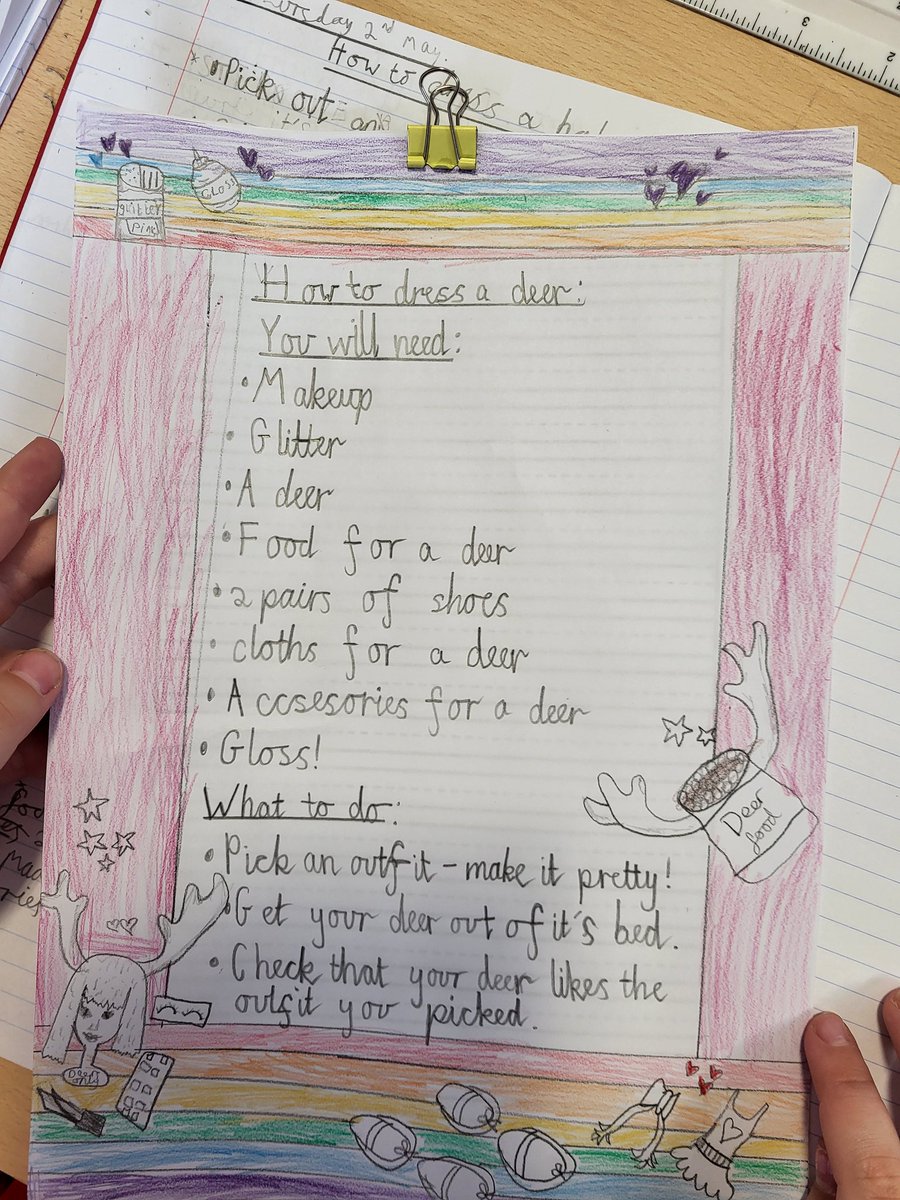 Thursday 2nd May.
How to dress a
* Pick out an
GLOSS
glitter
Pink
How to dress a deer:
You will need:
• Makeup
• Glitter
• A deer
• Food for a deer
• 2 pairs of shoes
• cloths for a deer
• Accsesories for a deer
• Gloss!
What to do:
• Pick an outfit - make it pretty!
• Get your deer out of it's bed.
• Check that your deer likes the
outfit you picked.
Deer
food
3
2